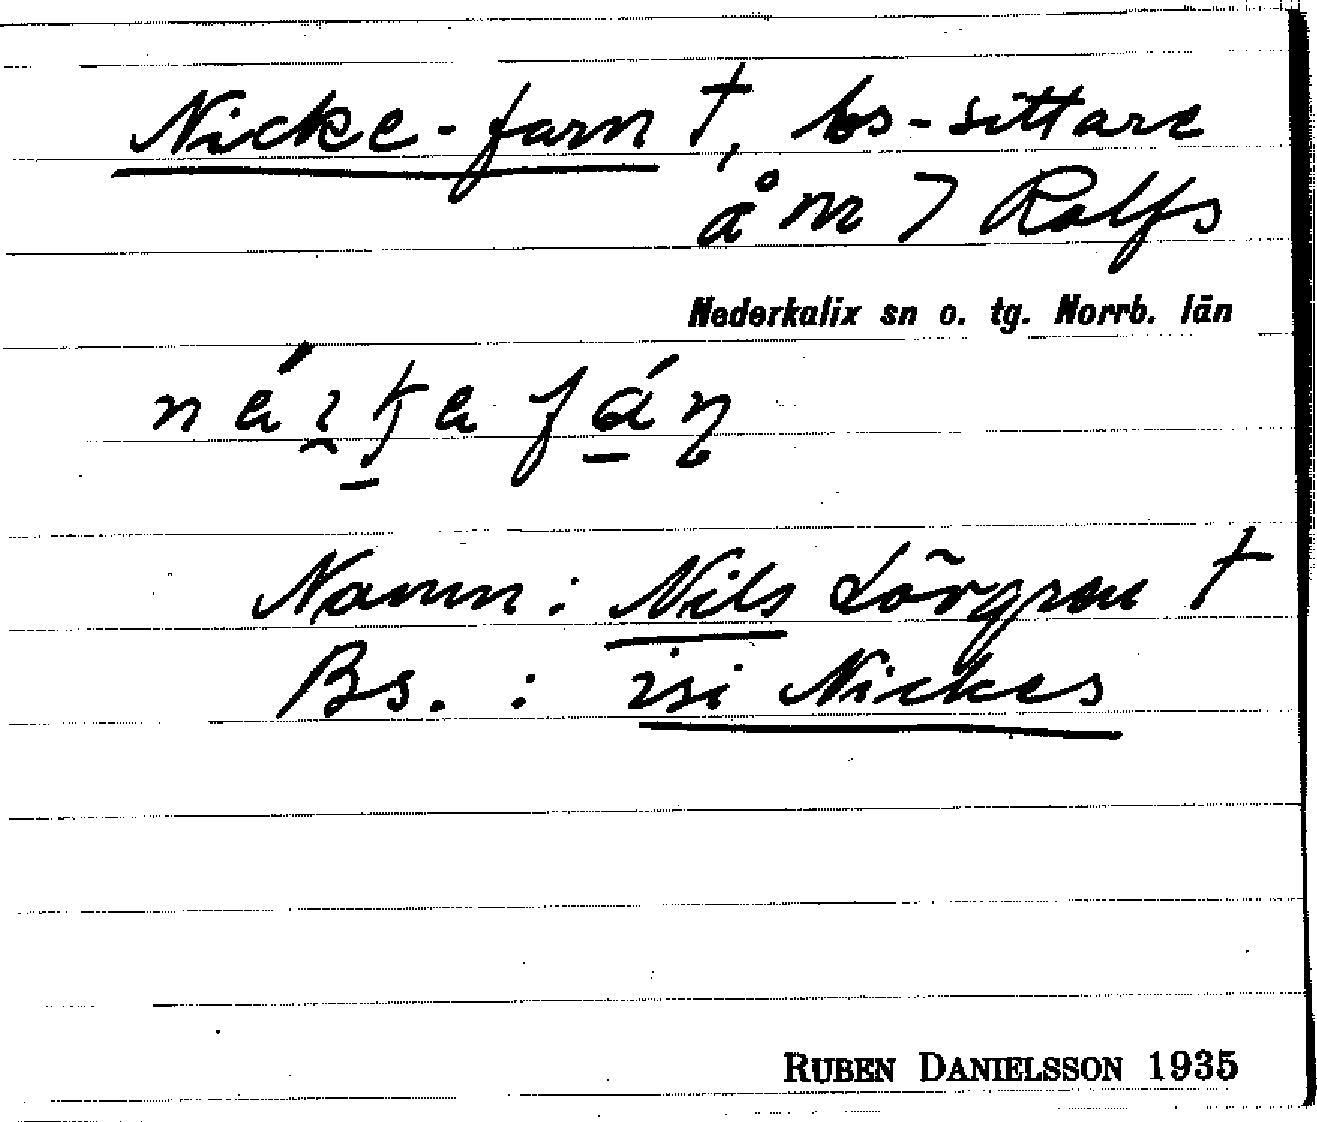 Nicke-farn †, bs-sittare
å nr 7 Rolfs
Nederkalix sn o. tg. Norrb. län
Namn: Nils Lövgren †
Bs.: isi Nickes
RUBEN DANIELSSON 1935